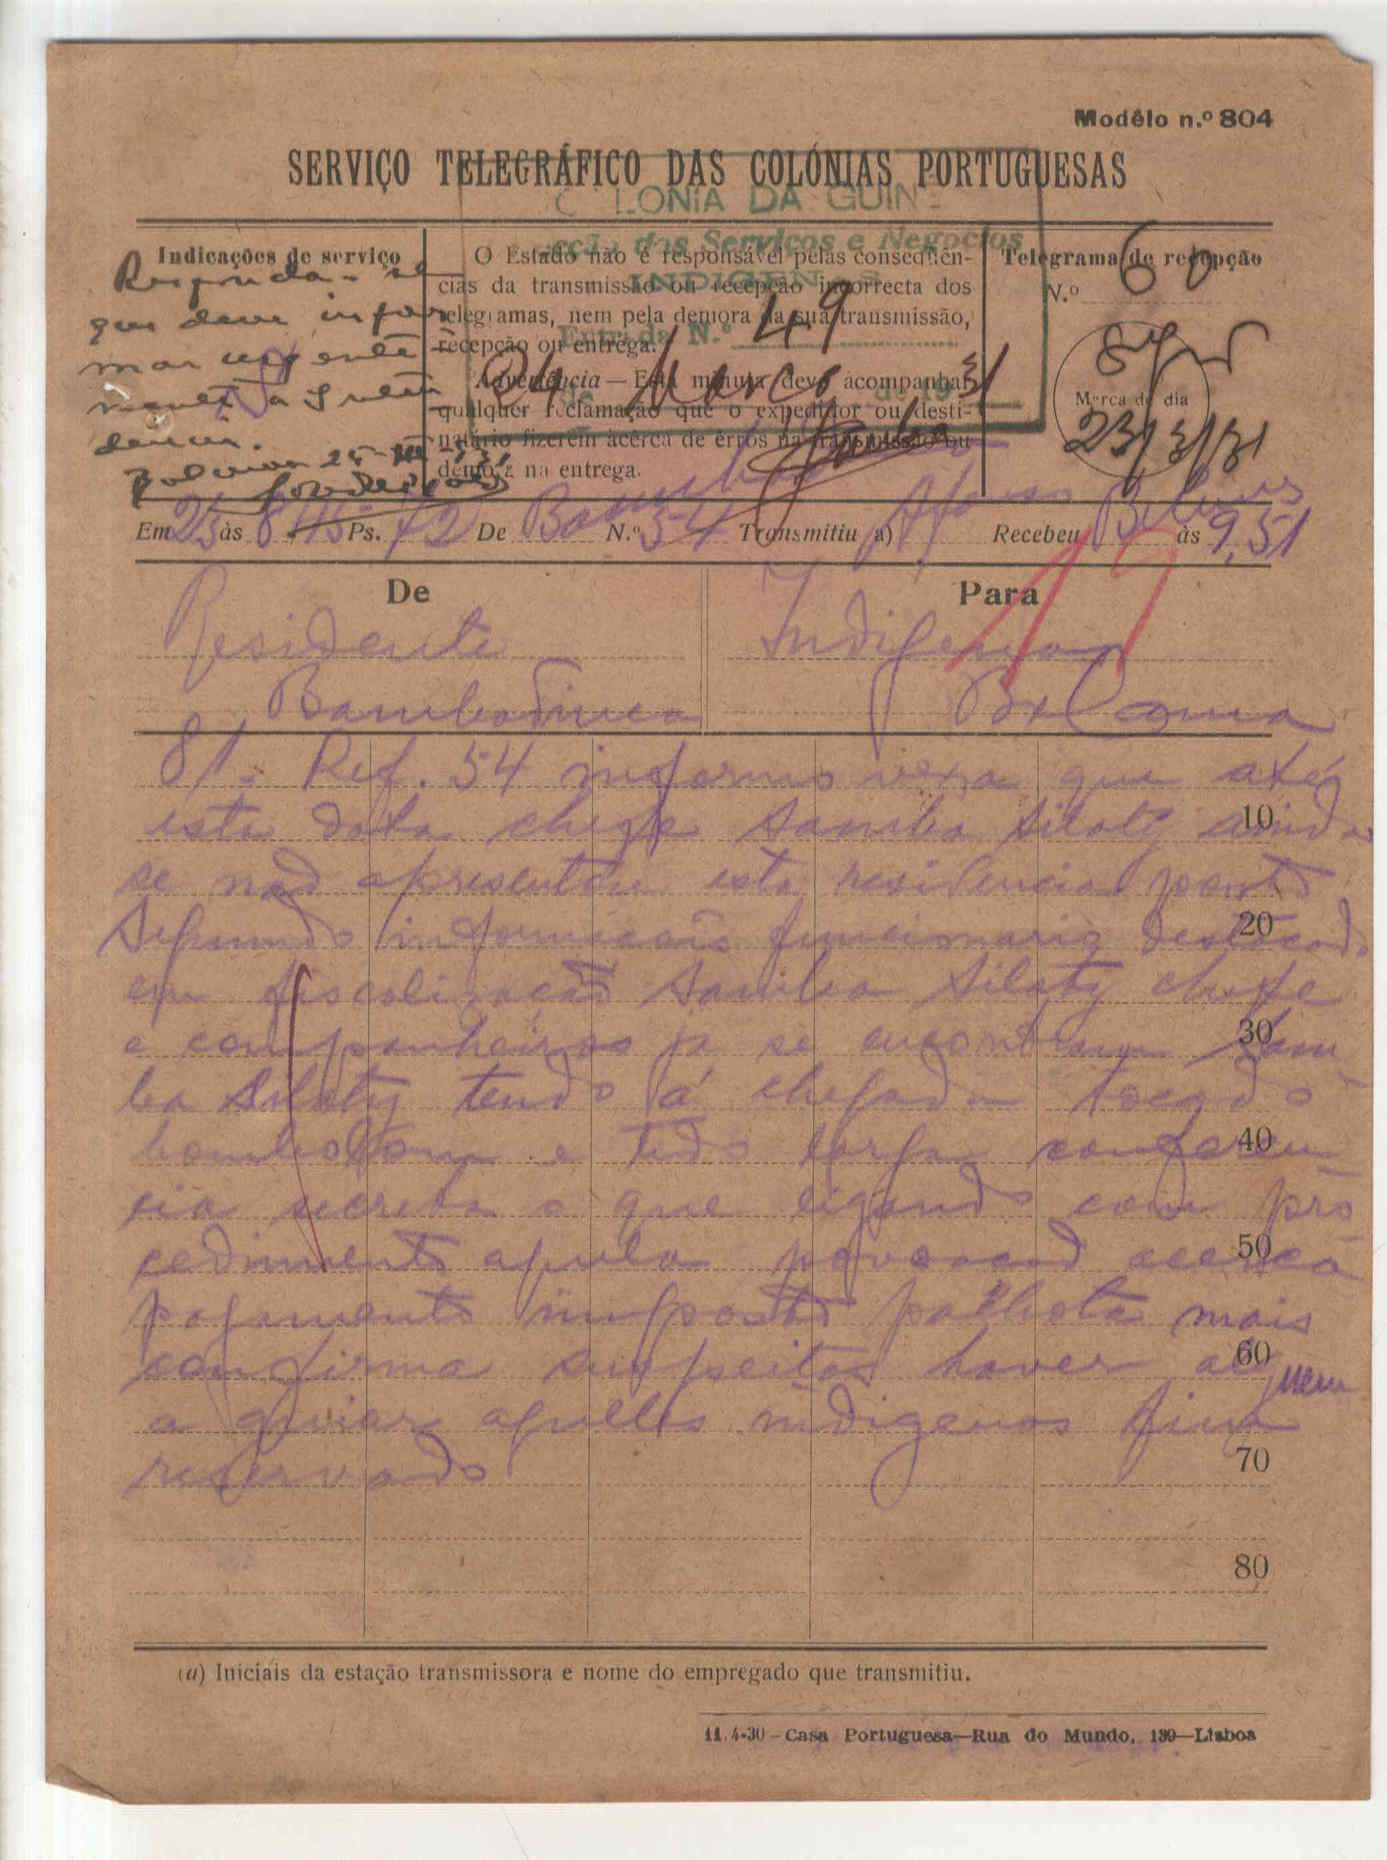 Modêlo n.º 804
SERVIÇO TELEGRÁFICO DAS COLÓNIAS PORTUGUESAS
COLONIA DA GUINÉ
Secção dos Serviços e Negocios
INDIGENAS
Entrada N.º 49
24 de Março de 1931
Indicações de serviço
Responda-se
que deve infor
mar urgente
mente a
O Estado não é responsável pelas conseqüên-
cias da transmissão ou recepção incorrecta dos
telegramas, nem pela demora da sua transmissão,
recepção ou entrega.
Advertência — Esta minuta deve acompanhar
qualquer reclamação que o expedidor ou desti-
natário fizerem àcêrca de êrros na transmissão ou
demora na entrega.
Telegrama de recepção
N.º 60
Marca do dia
23/3/31
Em 23 às 8,45 Ps. 72 De Bamb N.º 54 Transmitiu a) Afonso Recebeu às 9,51
De
Residente
Bambadinca
Para
Indigenas
Bolama
81- Ref. 54 informo vexa que até
esta data chefe Samba Silaty ainda
se não apresentou esta residencia ponto
Segundo informacois funcionario destacado
em fiscalização Samba Silaty chefe
e companheiros já se encontram Sam
ba Silaty tendo á chegada tocado
bombolom e tido larga conferen
cia secreta o que ligando com pro
cedimento aquela povoacao acerca
pagamento imposto palhota mais
confirma suspeitas haver alguem
a guiar aqueles indigenas fim
reservado
10
20
30
40
50
60
70
80
(a) Iniciais da estação transmissora e nome do empregado que transmitiu.
11.4-30 – Casa Portuguesa—Rua do Mundo, 139—Lisboa